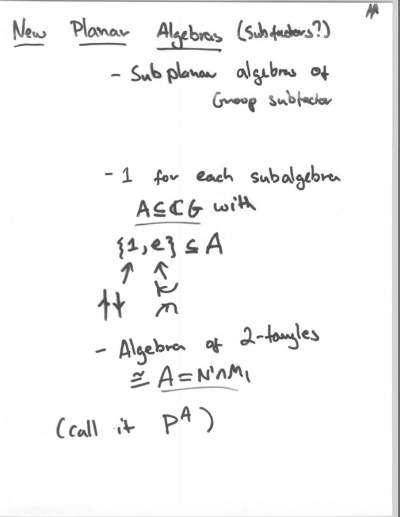 New Planar Algebras (Subfactors?)
- Sub planar algebras of
Group subfactor
- 1 for each subalgebra
A ⊆ ℂG with
{1, e} ⊆ A
- Algebra of 2-tangles
≅ A = N'∩M₁
(call it Pᴬ)